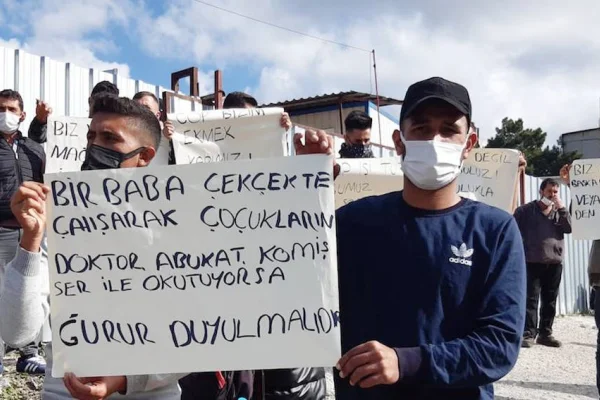 BİR BABA ÇEKÇEKTE
ÇALŞARAK ÇOÇUKLARIN
DOKTOR ABUKAT KOMİŞ
SER İLE OKUTUYORSA
ĞURUR DUYULMALIDIR
BİZ
EKMEK
DEĞİL
adidas
BİZ
BAKA
VEYA
DEN